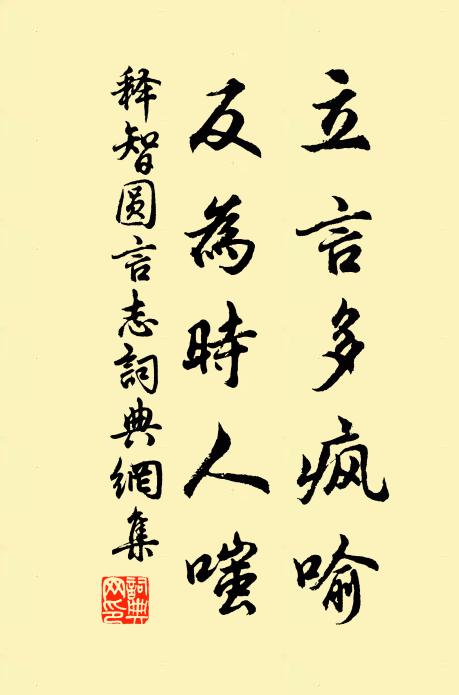 立言多疯喻
反為時人嗤
释智圆言志詞典網集
詞典網印